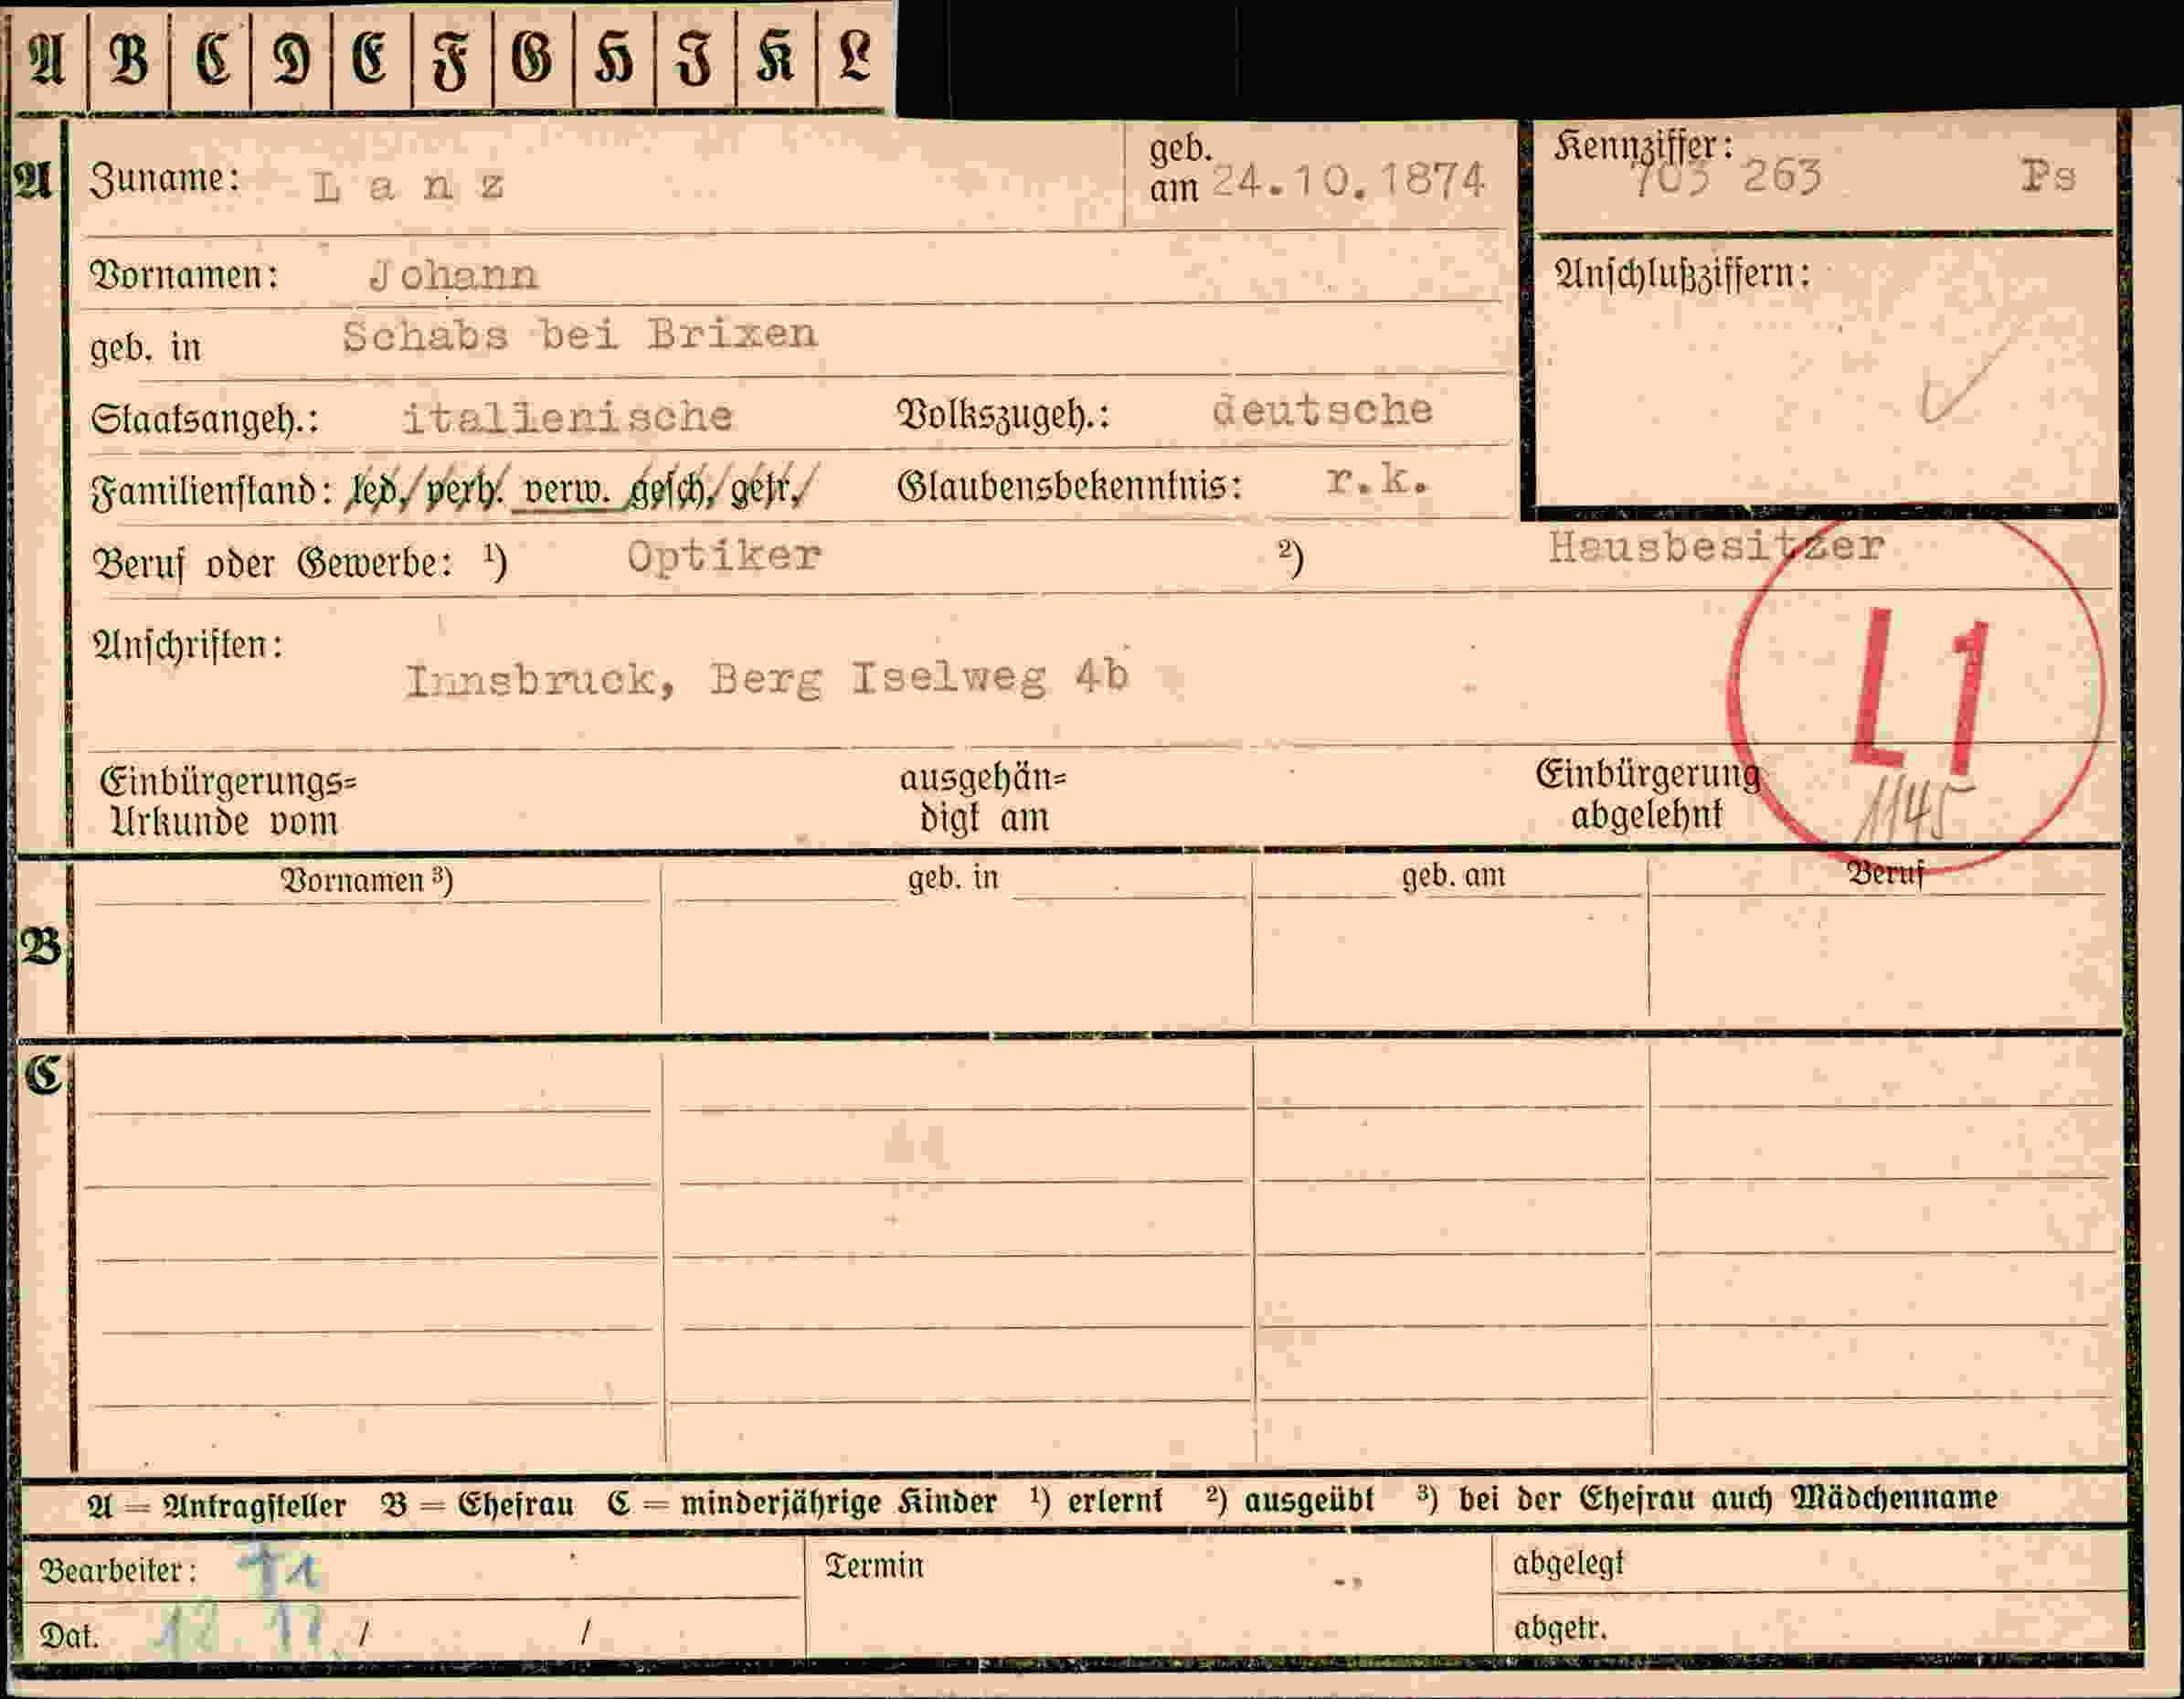 A B C D E F G H I K L
A Zuname: Lanz geb. am 24.10.1874 Kennziffer: 703 263 Ps
Vornamen: Johann Anschlußziffern:
geb. in Schabs bei Brixen
Staatsangeh.: italienische Volkszugeh.: deutsche
Familienstand: led. verh. verw. gesch. getr. Glaubensbekenntnis: r.k.
Beruf oder Gewerbe: ¹) Optiker ²) Hausbesitzer
Anschriften:
Innsbruck, Berg Iselweg 4b
L1
Einbürgerungs= ausgehän= Einbürgerung
Urkunde vom digt am abgelehnt 1145
Vornamen ³) geb. in geb. am Beruf
B
C
A = Antragsteller B = Ehefrau C = minderjährige Kinder ¹) erlernt ²) ausgeübt ³) bei der Ehefrau auch Mädchenname
Bearbeiter: Termin abgelegt
Dat. / / abgetr.